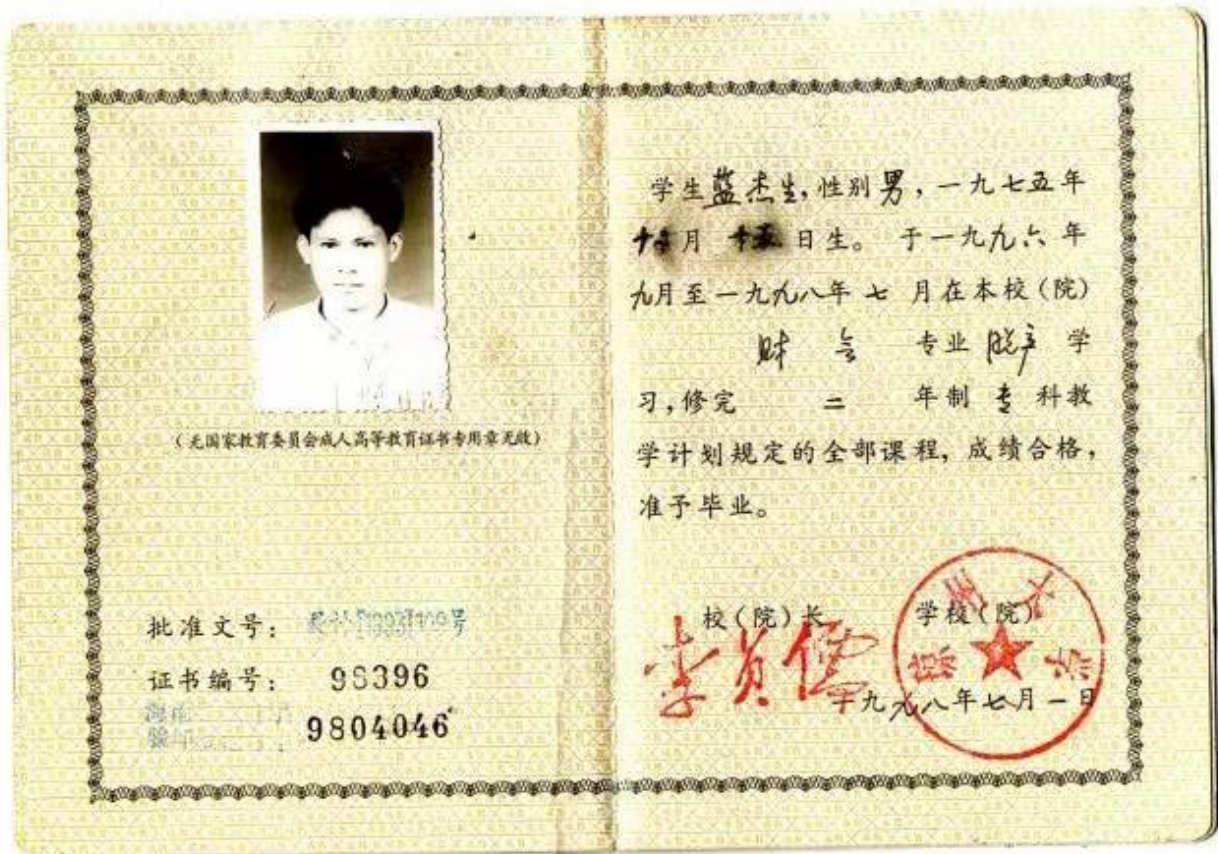 (无国家教育委员会成人高等教育证书专用章无效)
批准文号:
证书编号: 98396
9804046
学生蓝杰生,性别男,一九七五年
月 日生。 于一九九六年
九月至一九九八年七月在本校(院)
财会 专业脱产学
习,修完 二 年制专科教
学计划规定的全部课程,成绩合格,
准予毕业。
校(院)长 学校(院)
李 儒
一九九八年七月一日
琼 大学